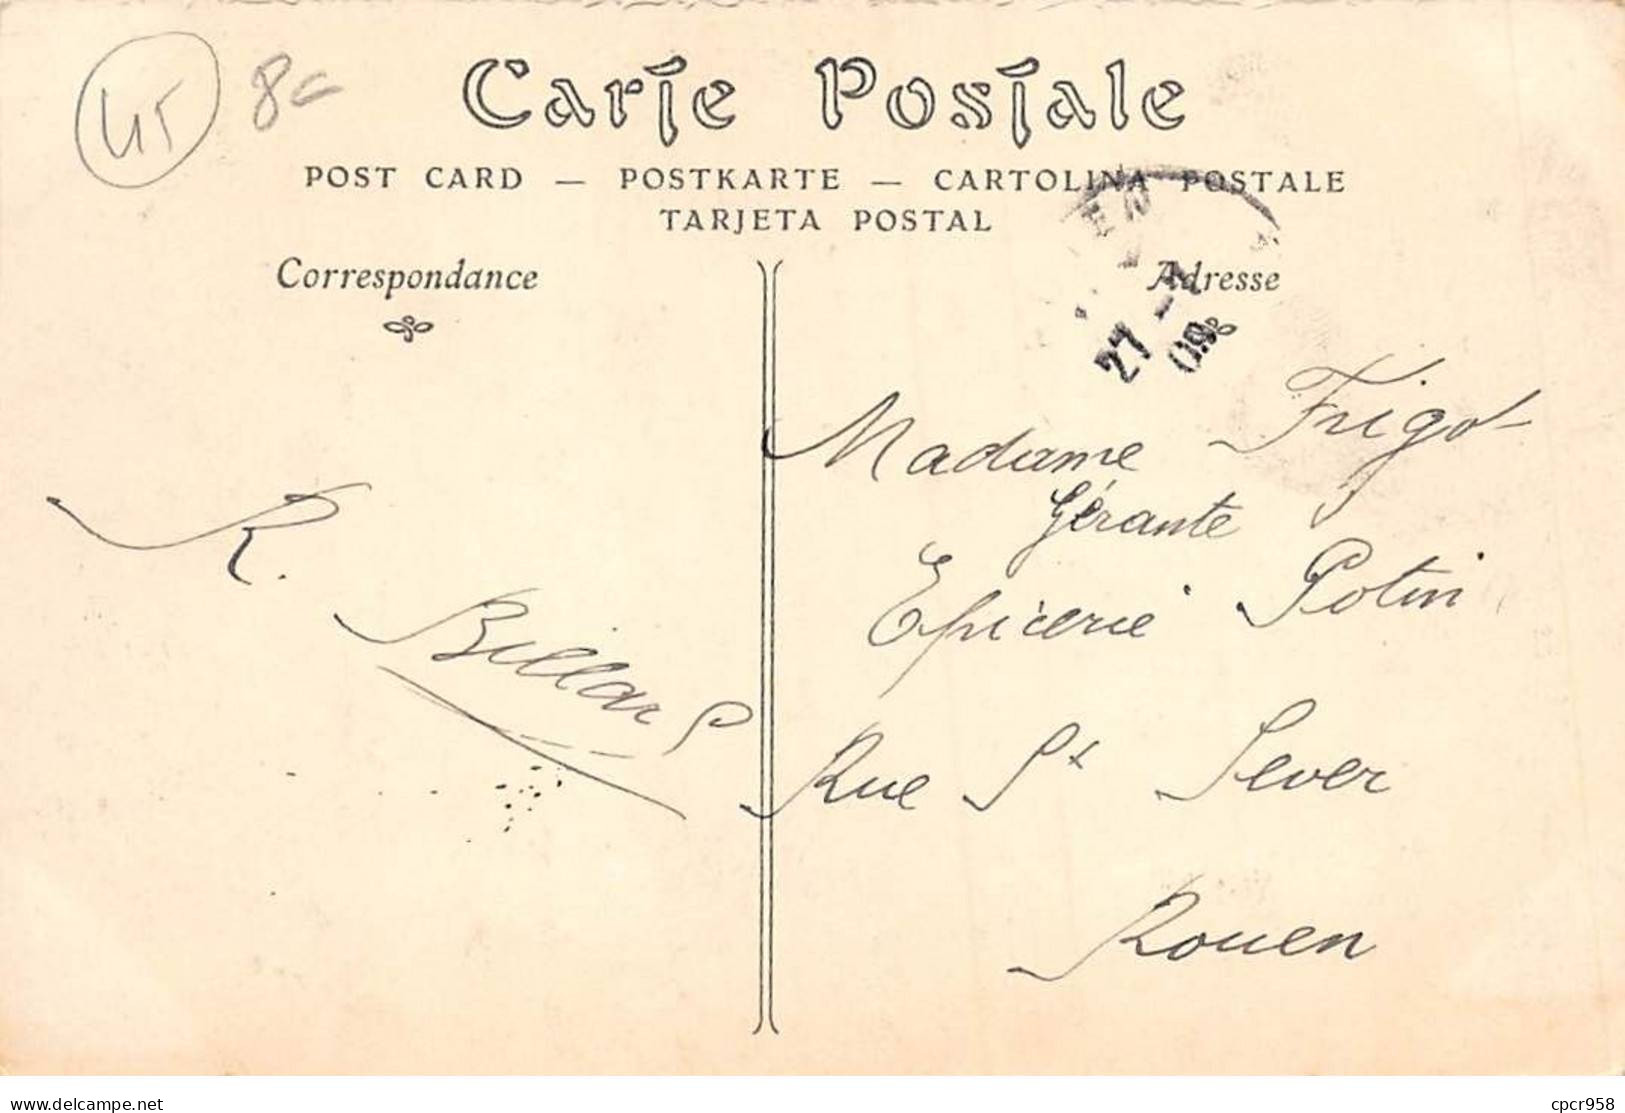 45
8c
Carte Postale
POST CARD — POSTKARTE — CARTOLINA POSTALE
TARJETA POSTAL
Correspondance
Adresse
27
09
R. Billard
Madame Frigot
Gérante
Epicerie Potin
Rue St Sever
Rouen
delcampe.net
cpcr958